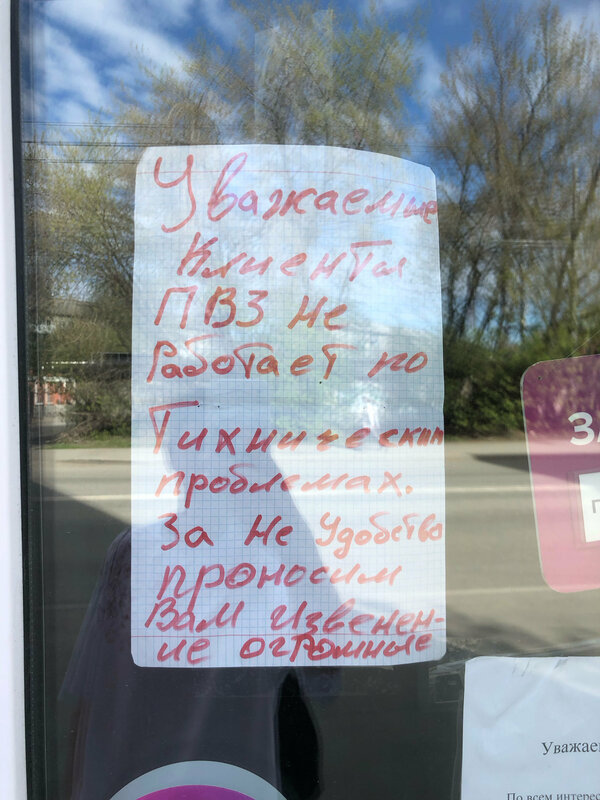 Уважаемые
Клиенты
ПВЗ не
работает по
Тихническим
проблемах.
За не удобство
проносим
Вам извенен-
ие огромные
Уважае
По всем интерес